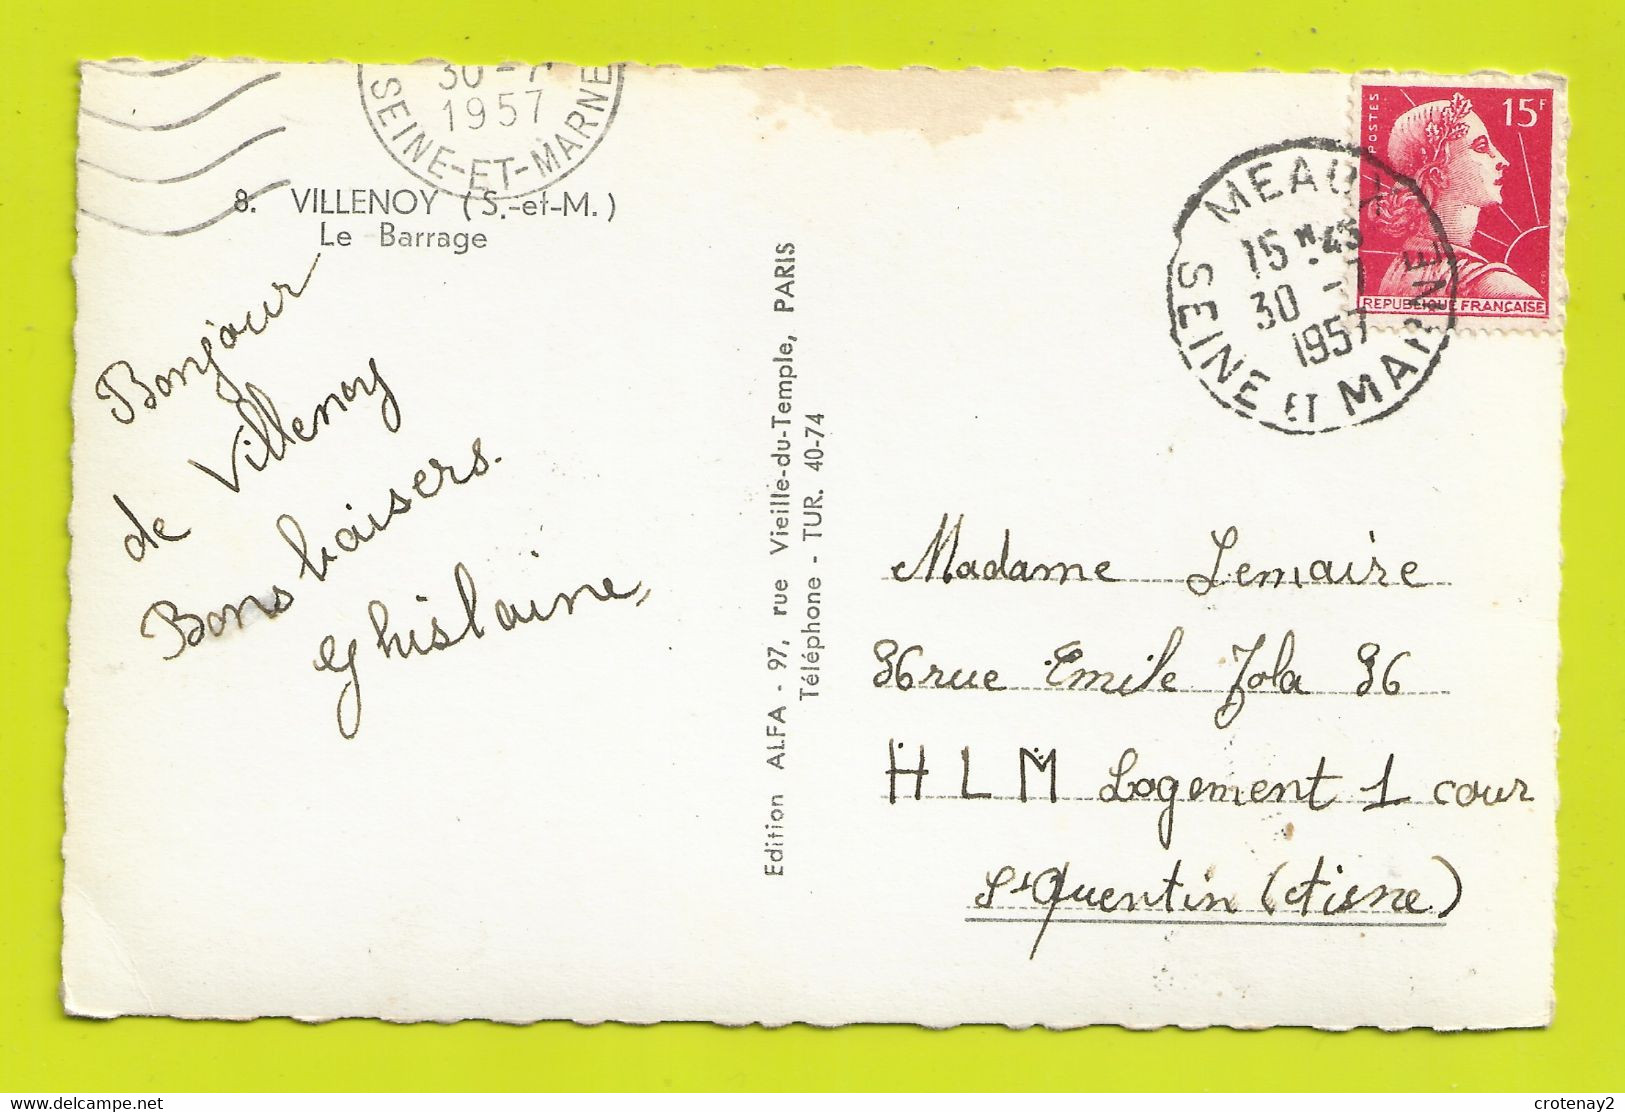 30-7
1957
SEINE-ET-MARNE
8. VILLENOY (S.-et-M.)
Le Barrage
Bonjour
de Villenoy
Bons baisers.
Ghislaine
Edition ALFA - 97, rue Vieille-du-Temple, PARIS
Téléphone - TUR. 40-74
POSTES
15F
REPUBLIQUE FRANÇAISE
MEAUX
15 H.45
30 -7
1957
SEINE ET MARNE
Madame Lemaire
36 rue Emile Zola 36
H L M Logement 1 cour
St Quentin (Aisne)
crotenay2